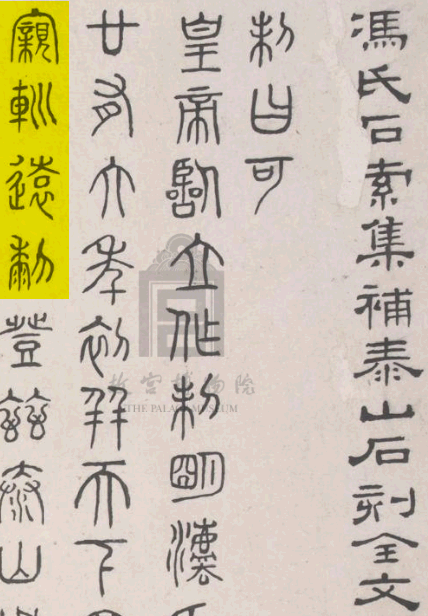 馮氏石索集補泰山石刻全文
制曰可
皇帝臨立作制明灋
廿有六年初并天下
寴䡅遠黎登茲泰山
故宮博物院
THE PALACE MUSEUM